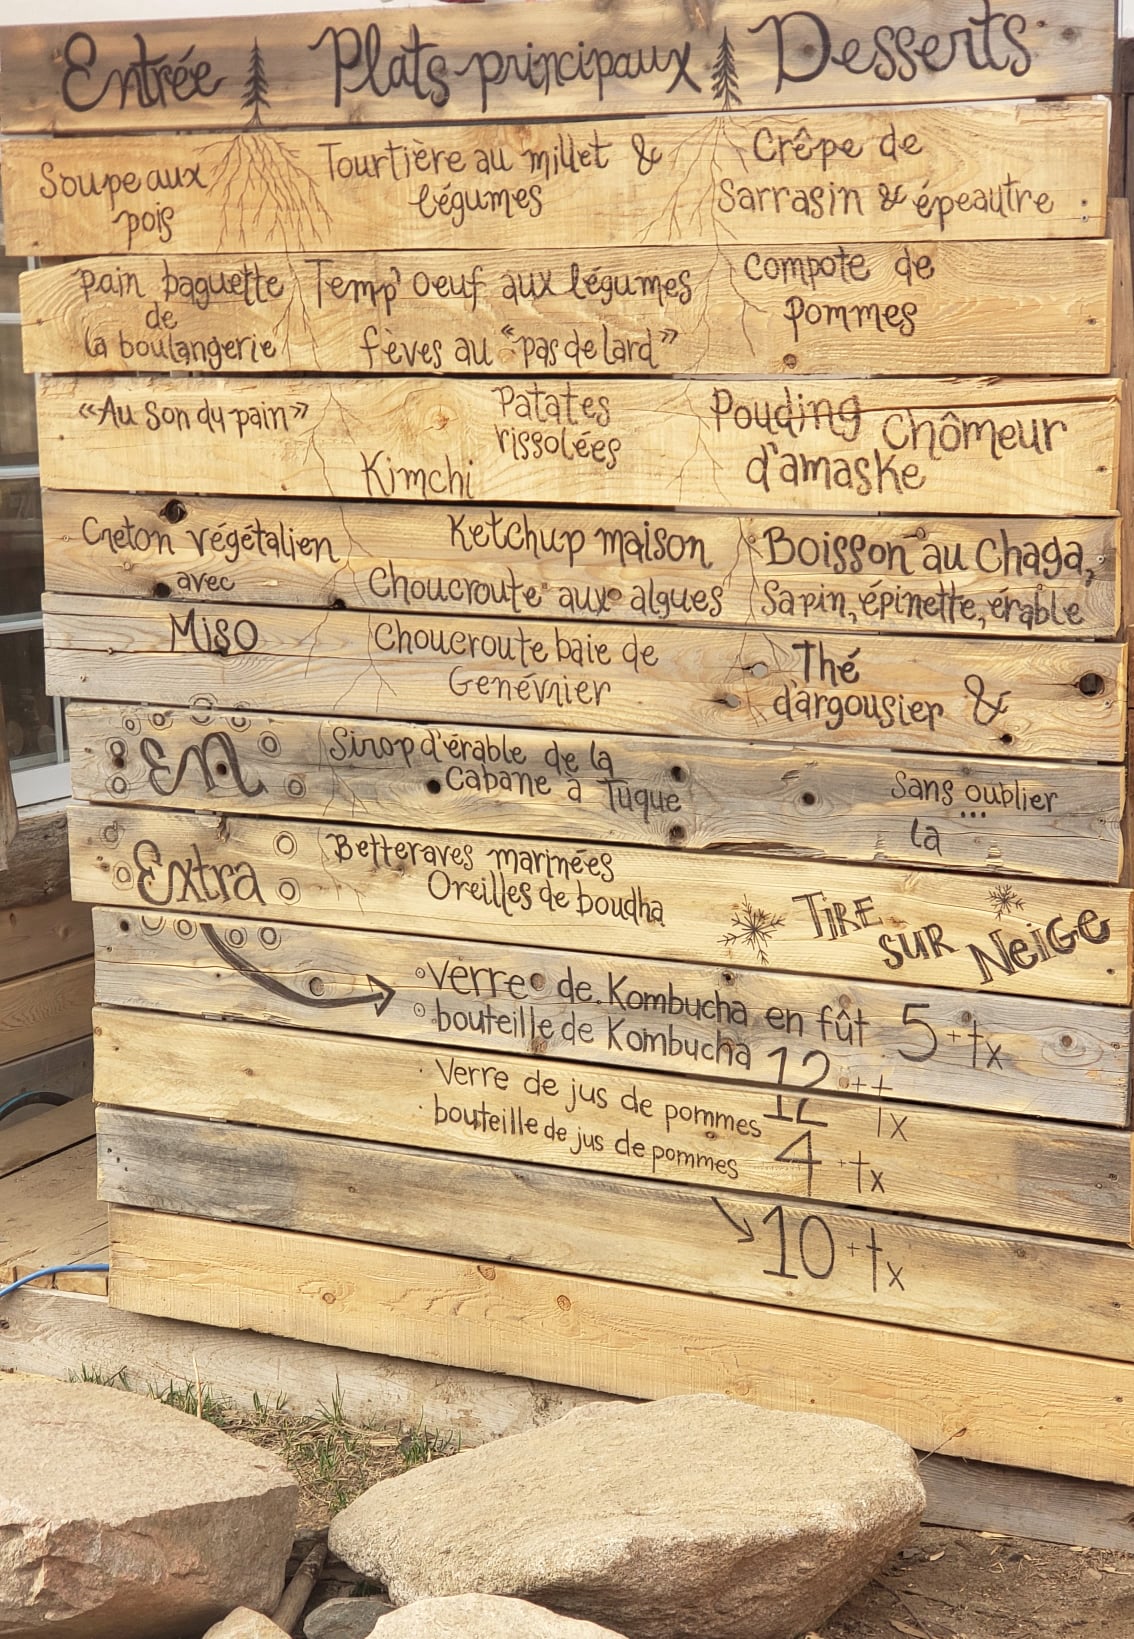 Entrée
Soupe aux
pois
pain baguette
de
la boulangerie
«Au Son du pain»
Creton végétalien
avec
Miso
Plats principaux
Tourtière au millet &
légumes
Temp' oeuf aux légumes
fèves au "pas de lard"
Patates
rissolées
Kimchi
Ketchup maison
Choucroute aux algues
Choucroute baie de
Genévrier
Sirop d'érable de la
Cabane à Tuque
Betteraves marinées
Oreilles de boudha
Desserts
Crêpe de
Sarrasin & épeautre
Compote de
pommes
Pouding Chômeur
d'amaske
Boisson au Chaga,
Sapin, épinette, érable
Thé
d'argousier &
Sans oublier
...
la
TIRE
SUR NeiGe
EN
Extra
verre de Kombucha en fût 5 + tx
bouteille de Kombucha 12 + tx
Verre de jus de pommes 4 + tx
bouteille de jus de pommes
10 + tx